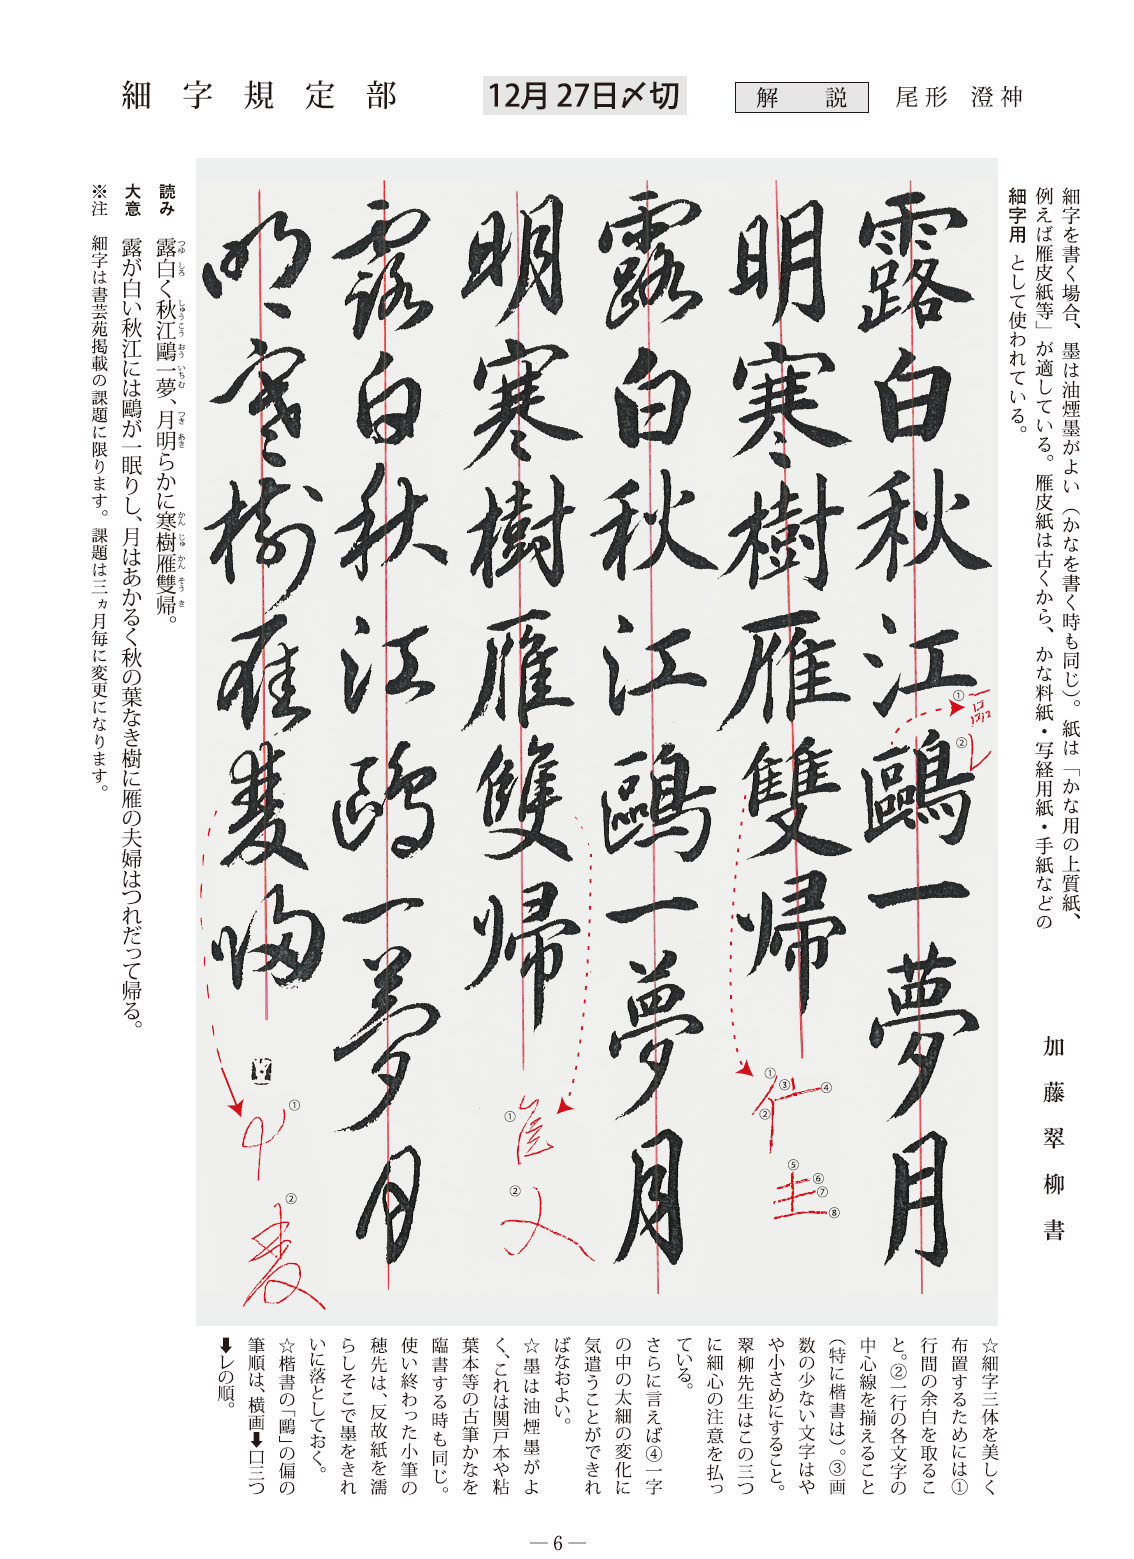 細字規定部
12月27日〆切
解説
尾形 澄神
細字を書く場合、墨は油煙墨がよい（かなを書く時も同じ）。紙は「かな用の上質紙、
例えば雁皮紙等」が適している。雁皮紙は古くから、かな料紙・写経用紙・手紙などの
細字用 として使われている。
加藤翠柳書
露白秋江鷗一夢月
明寒樹雁雙帰
露白秋江鷗一夢月
明寒樹雁雙帰
露白秋江鷗一夢月
明寒樹雁雙帰
読み 露白く秋江鷗一夢、月明らかに寒樹雁雙帰。
つゆ しろ しゅうこう おう いちむ つき あき かん じゅ かん そう き
大意 露が白い秋江には鷗が一眠りし、月はあかるく秋の葉なき樹に雁の夫婦はつれだって帰る。
※注 細字は書芸苑掲載の課題に限ります。課題は三ヵ月毎に変更になります。
①
②
①
②
③
④
⑤
⑥
⑦
⑧
①
②
①
②
☆細字三体を美しく
布置するためには①
行間の余白を取るこ
と。②一行の各文字の
中心線を揃えること
（特に楷書は）。③画
数の少ない文字はや
や小さめにすること。
翠柳先生はこの三つ
に細心の注意を払っ
ている。
さらに言えば④一字
の中の太細の変化に
気遣うことができれ
ばなおよい。
☆墨は油煙墨がよ
く、これは関戸本や粘
葉本等の古筆かなを
臨書する時も同じ。
使い終わった小筆の
穂先は、反故紙を濡
らしそこで墨をきれ
いに落としておく。
☆楷書の「鷗」の偏の
筆順は、横画➡口三つ
➡レの順。
— 6 —